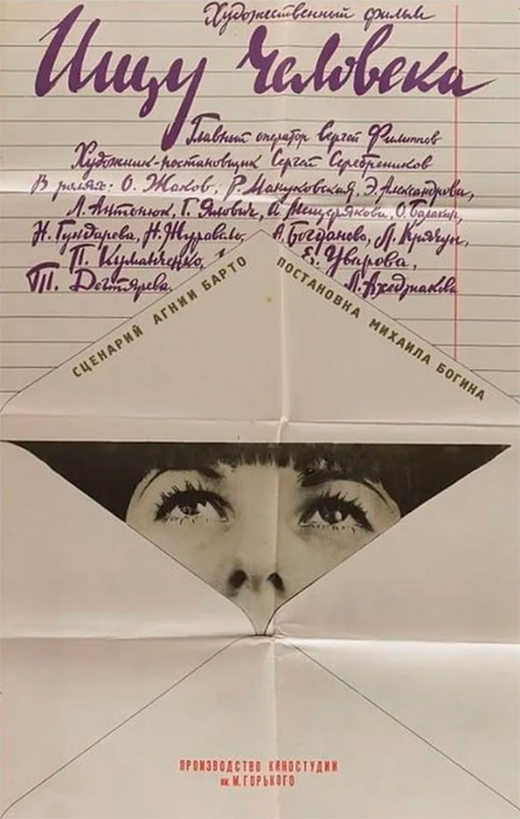 Художественный фильм
Ищу человека
Главный оператор Сергей Филиппов
Художник-постановщик Сергей Серебреников
В ролях: О. Жаков, Р. Мануковская, Э. Александрова,
Л. Антонюк, Г. Ялович, А. Мещерякова, О. Балакин,
Н. Гундарева, Н. Журавель, А. Богданова, Л. Крячун,
П. Куманченко, Е. Уварова,
Т. Дегтярева. Л. Ахеджакова
СЦЕНАРИЙ АГНИИ БАРТО
ПОСТАНОВКА МИХАИЛА БОГИНА
ПРОИЗВОДСТВО КИНОСТУДИИ
им. М. ГОРЬКОГО